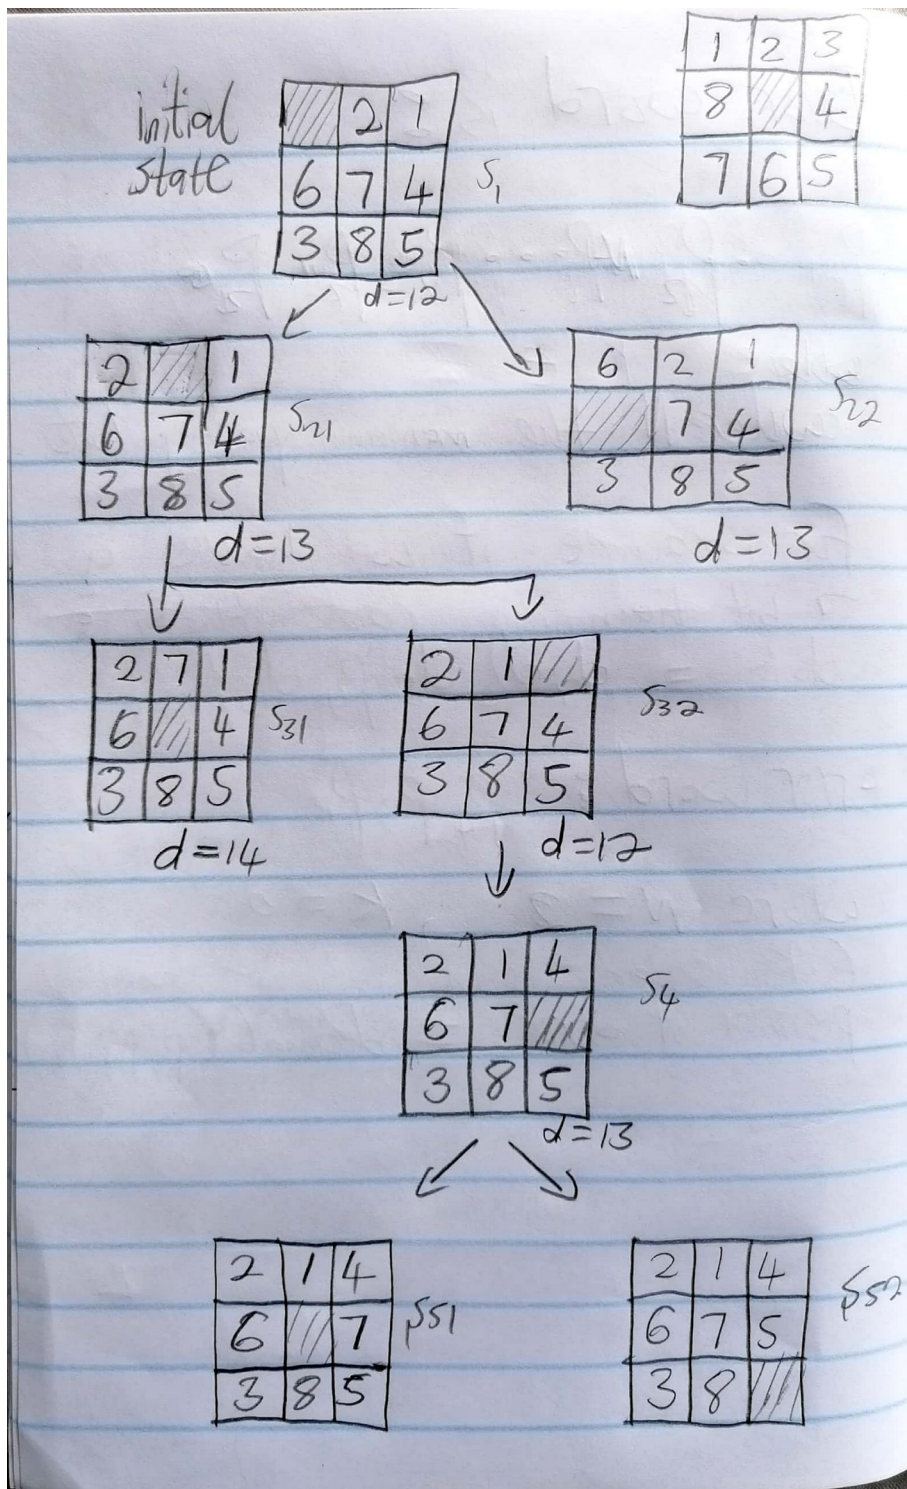 1 2 3
8 4
7 6 5
initial
state
2 1
6 7 4
3 8 5
S1
d=12
2 1
6 7 4
3 8 5
S21
d=13
6 2 1
7 4
3 8 5
S22
d=13
2 7 1
6 4
3 8 5
S31
d=14
2 1
6 7 4
3 8 5
S32
d=12
2 1 4
6 7
3 8 5
S4
d=13
2 1 4
6 7
3 8 5
S51
2 1 4
6 7 5
3 8
S52